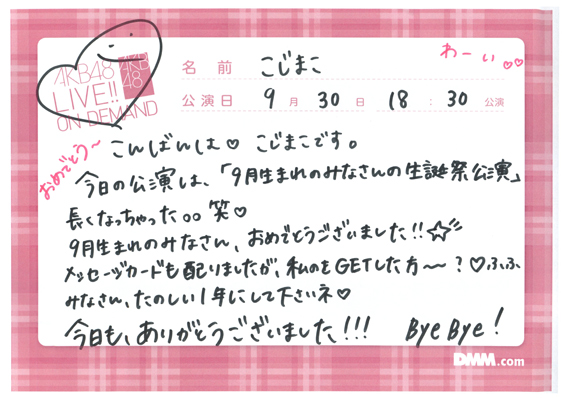 AKB48
LIVE!!
ON DEMAND
AKB
48
名前 こじまこ
わーい♡♡
公演日 9月30日 18:30公演
おめでとう〜
こんばんは♡ こじまこです。
今日の公演は、「9月生まれのみなさんの生誕祭公演」
長くなっちゃった。。笑♡
9月生まれのみなさん、おめでとうございました!!☆
メッセージカードも配りましたが、私のをGETした方〜?♡ふふ
みなさん、たのしい1年にして下さいネ♡
今日も、ありがとうございました!!! Bye Bye!
DMM.com